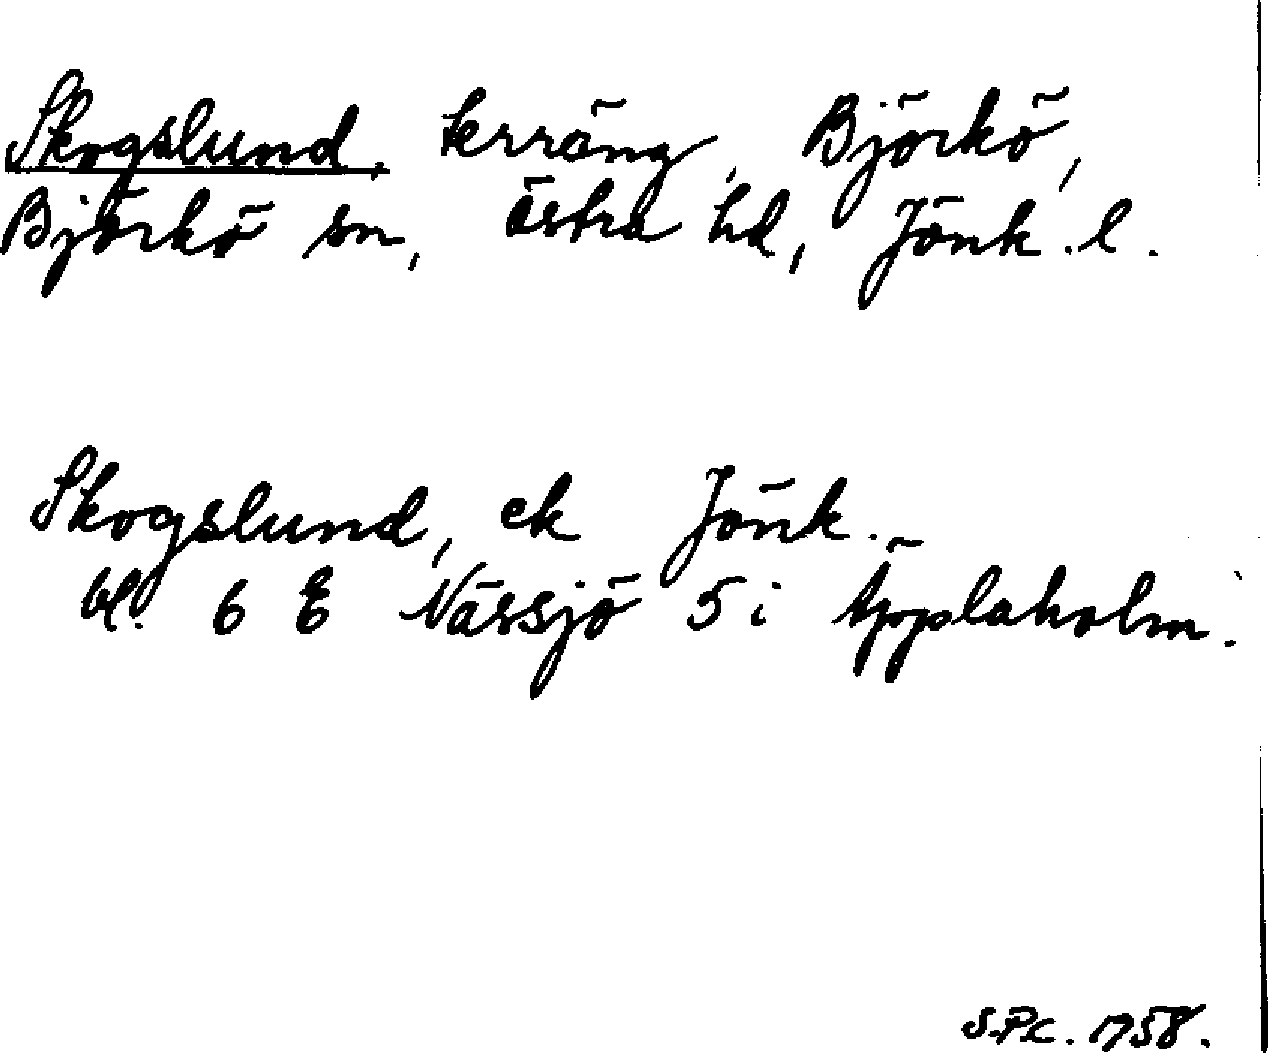 Skogslund, terräng, Björkö,
Björkö sn, Östra hd, Jönk. l.
Skogslund, ek Jönk.
bl. 6 E Nässjö 5 i Äpplaholm.
S.P.C. 1958.